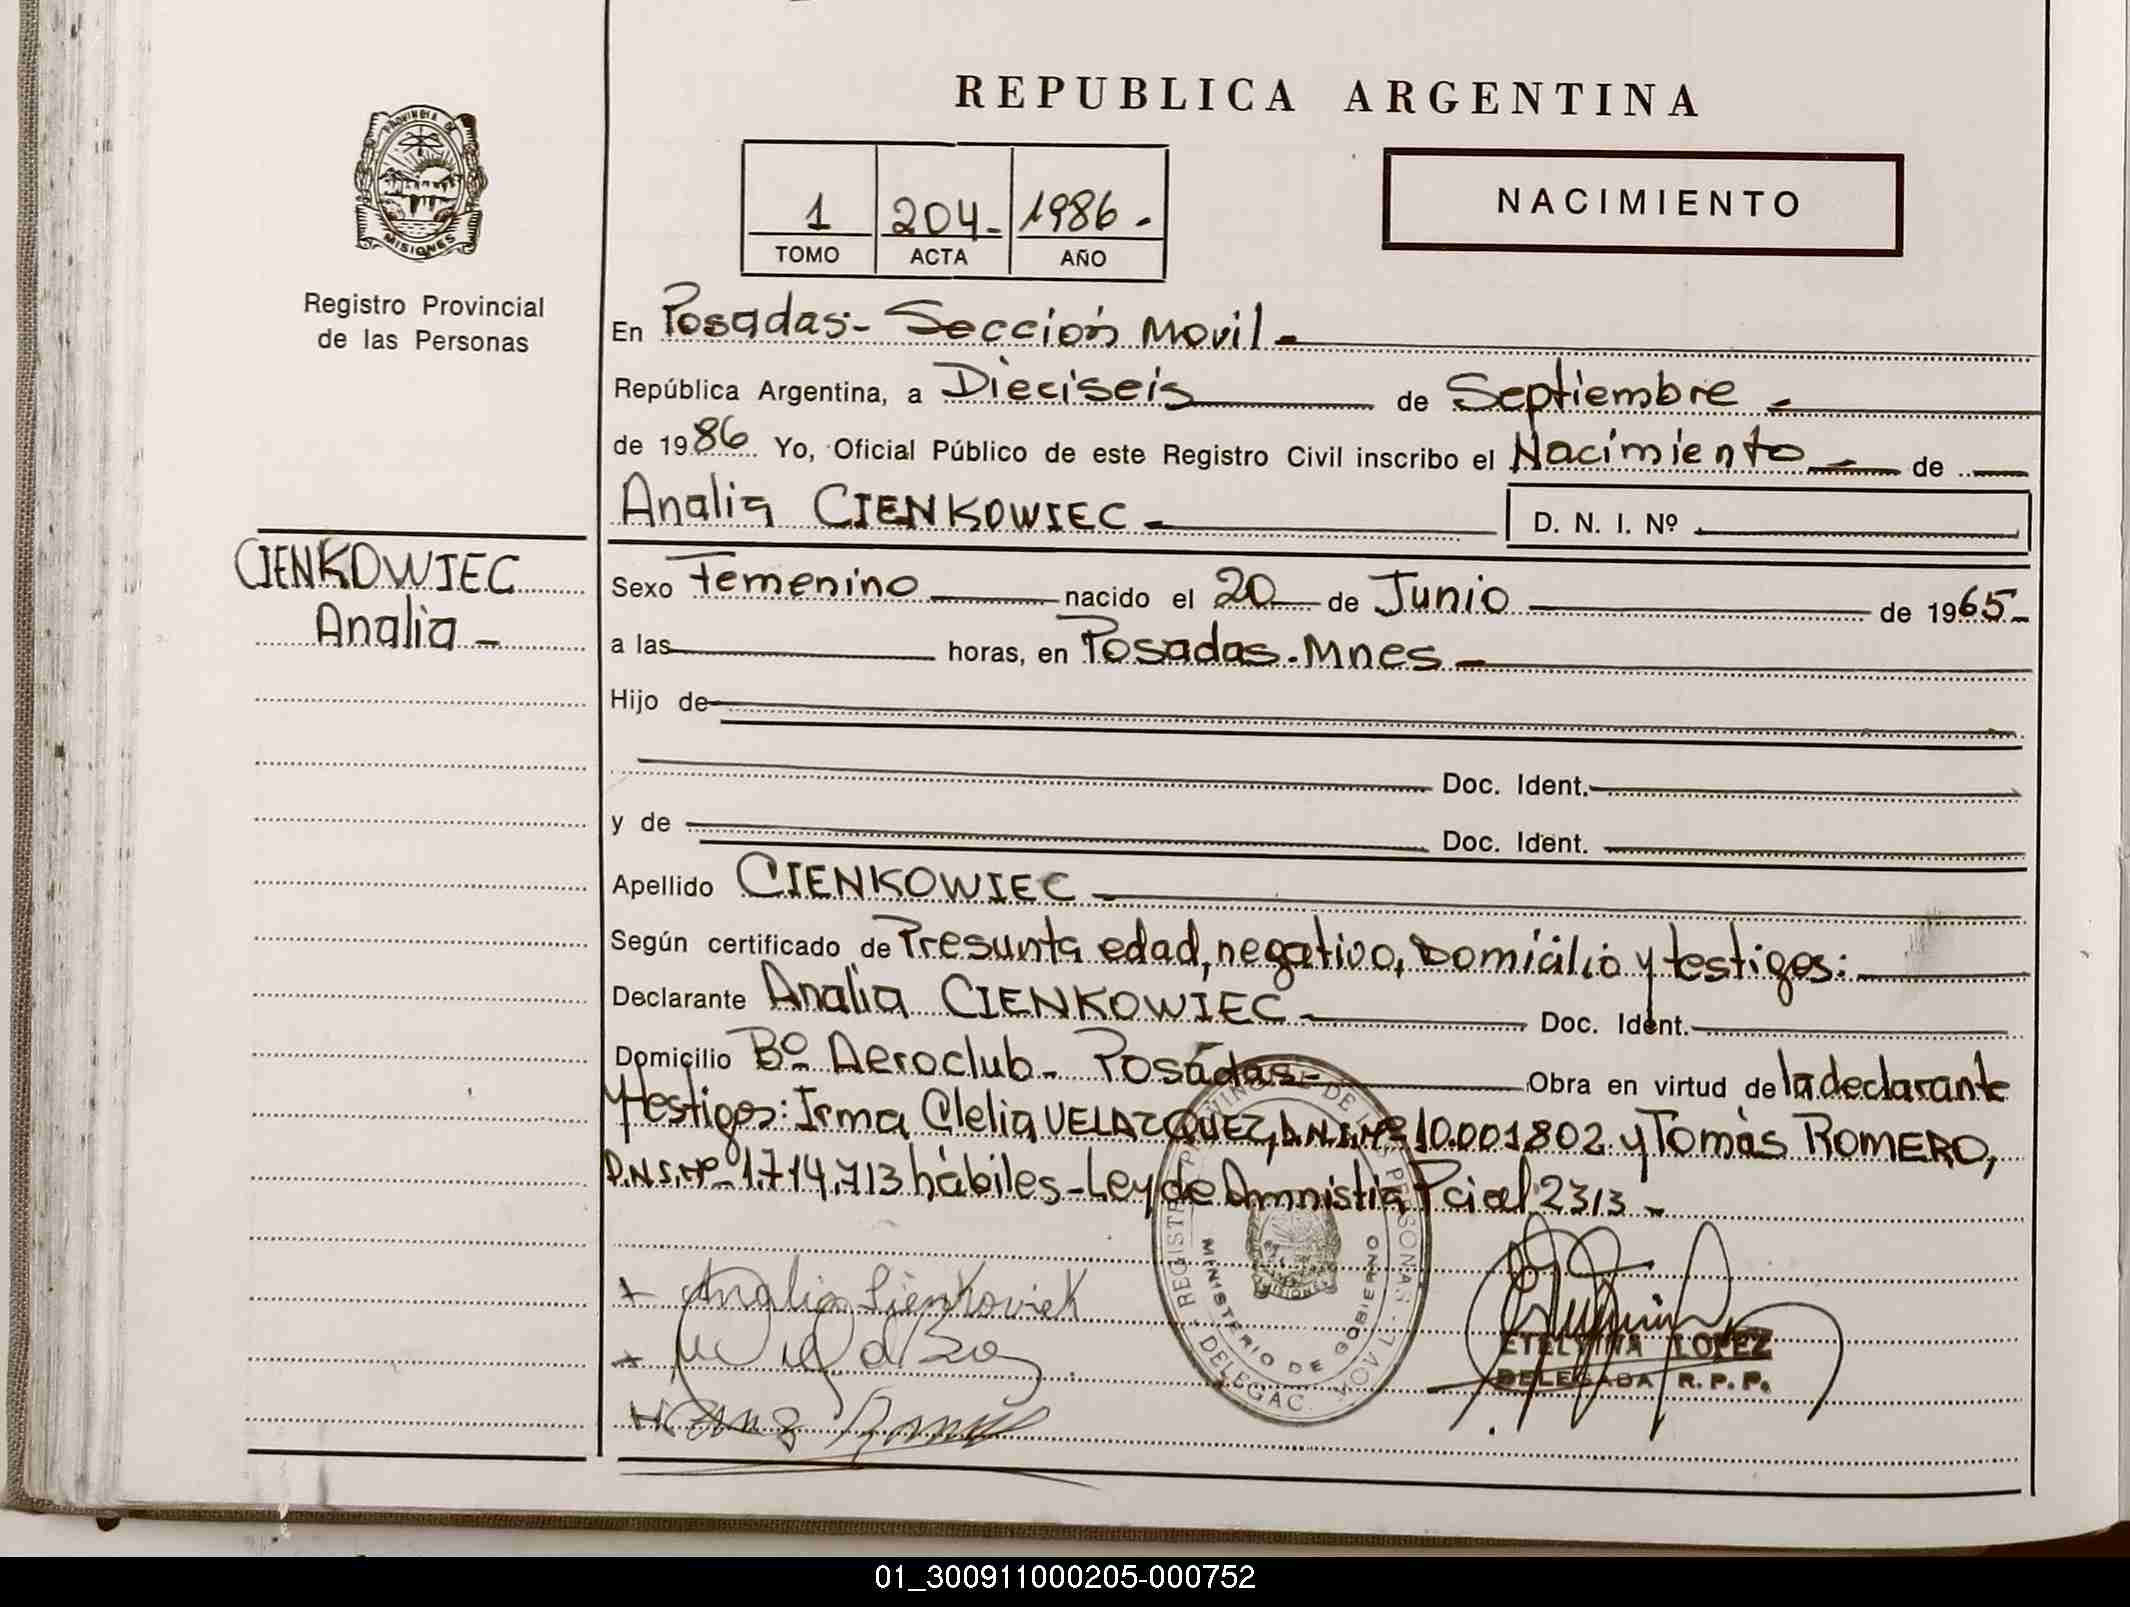 REPUBLICA ARGENTINA
PROVINCIA DE
MISIONES
Registro Provincial
de las Personas
1 204- 1986-
TOMO ACTA AÑO
NACIMIENTO
En Posadas- Sección Movil-
República Argentina, a Dieciseis de Septiembre -
de 1986 Yo, Oficial Público de este Registro Civil inscribo el Nacimiento - de
Analia CIENKOWIEC - D. N. I. Nº
CIENKOWIEC
Analia -
Sexo Femenino nacido el 20 de Junio de 1965-
a las horas, en Posadas. Mnes -
Hijo de
Doc. Ident.
y de Doc. Ident.
Apellido CIENKOWIEC -
Según certificado de Presunta edad, negativo, Domicilio y testigos:
Declarante Analia CIENKOWIEC - Doc. Ident.
Domicilio Bº Aeroclub - Posadas- Obra en virtud de la declarante
y testigos: Irma Clelia VELAZQUEZ, D.N.I.Nº 10.001802 y Tomás ROMERO,
D.N.I.Nº 1.714.713 hábiles - Ley de Amnistia Pcial 2313 -
REGISTRO PROVINCIAL DE LAS PERSONAS
MINISTERIO DE GOBIERNO
DELEGAC. MOVIL
MISIONES
Analia Cienkoviek
ETELVINA LOPEZ
DELEGADA R.P.P.
01_300911000205-000752